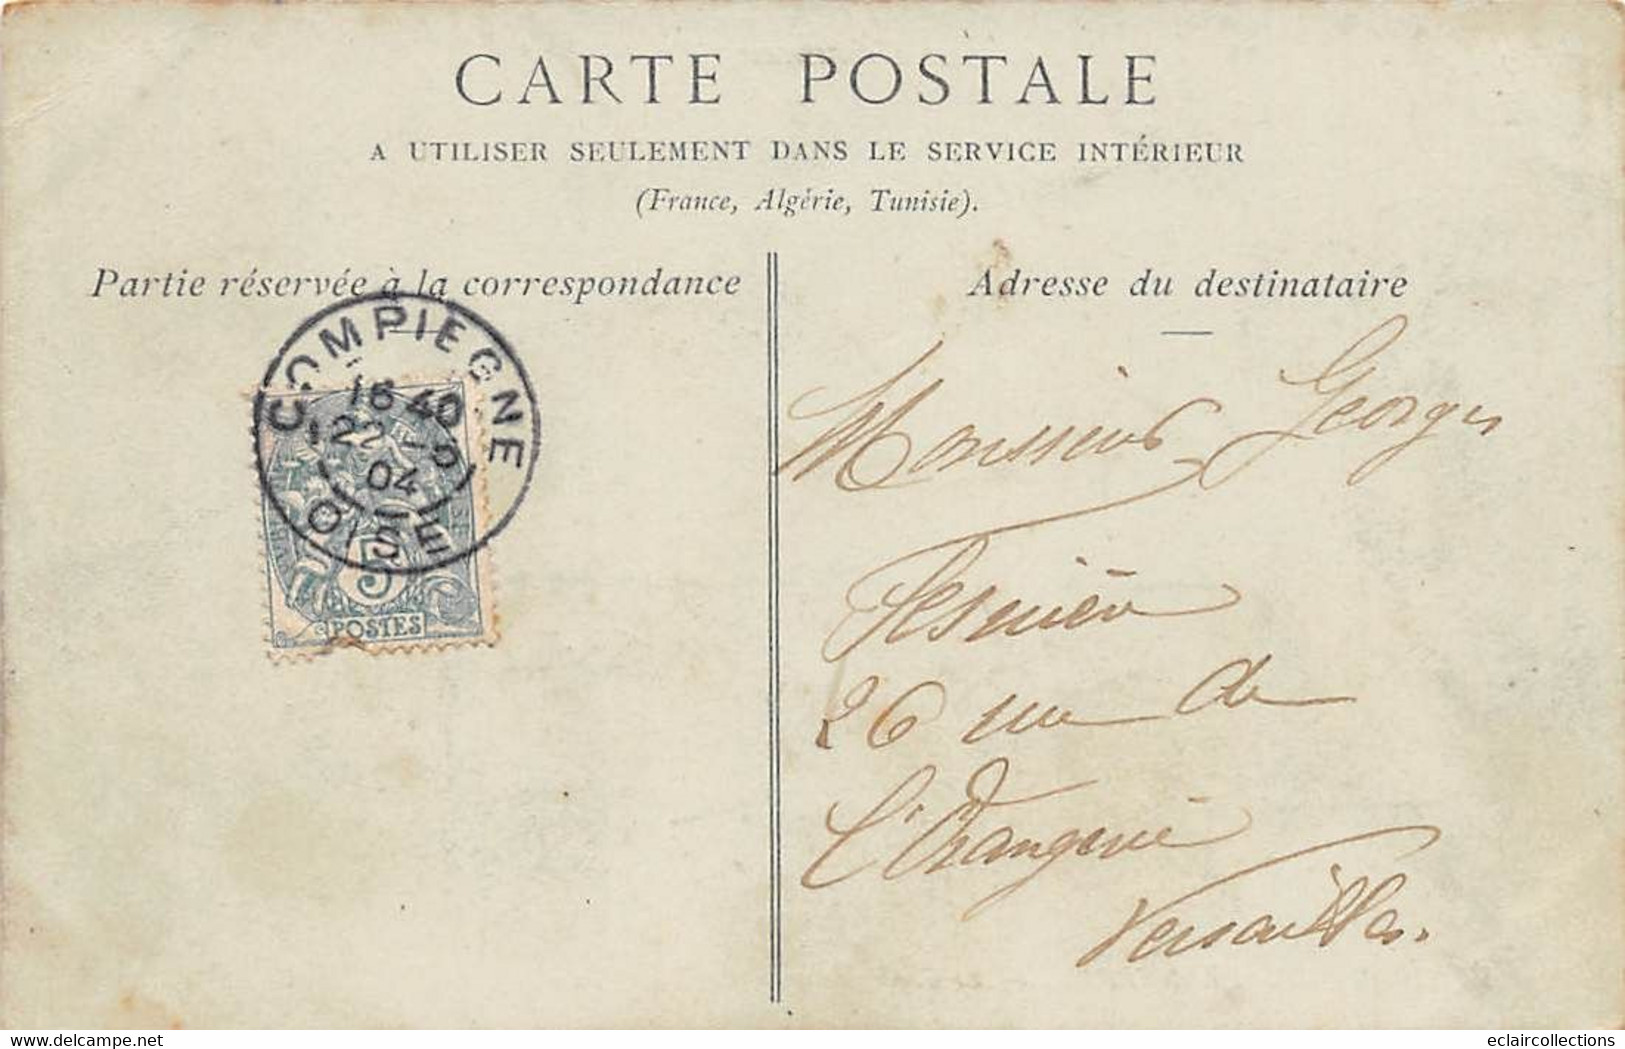 CARTE POSTALE
A UTILISER SEULEMENT DANS LE SERVICE INTÉRIEUR
(France, Algérie, Tunisie).
Partie réservée à la correspondance
Adresse du destinataire
COMPIEGNE
16 40
04
OISE
5
POSTES
Monsieur Georges
26 rue de
l'Orangerie
Versailles.
delcampe.net
eclaircollections